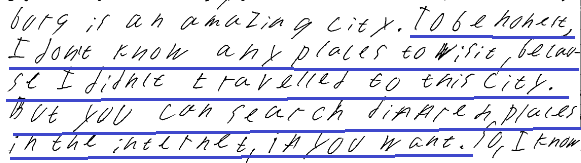 burg is an amazing city. To be honest,
I don't know any places to visit, becau-
se I didn't travelled to this city.
But you can search different places
in the internet, if you want. So, I know